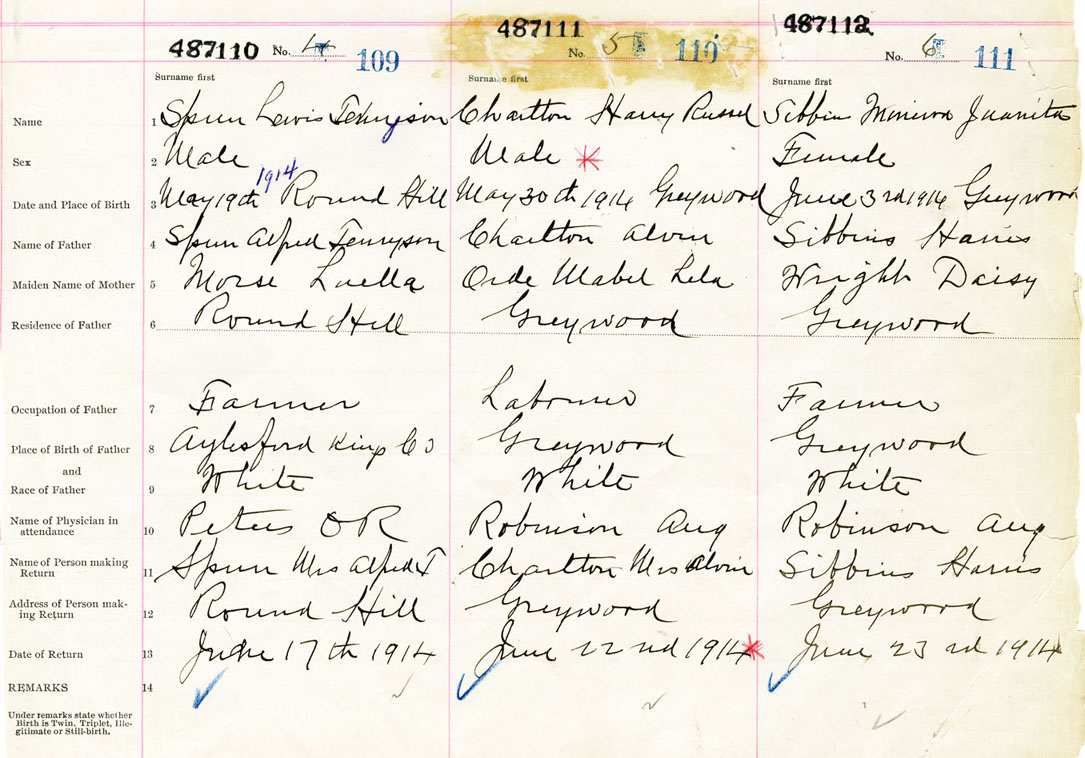 487110 No. 4 109
487111 No. 5 110
487112 No. 6 111
Surname first Surname first Surname first
Name 1 Spurr Lewis Tennyson Charlton Harry Russel Sibbins Juanita
Sex 2 Male Male Female
1914
Date and Place of Birth 3 May 19th Round Hill May 30th 1914 Greywood June 3rd 1914 Greywood
Name of Father 4 Spurr Alfred Tennyson Charlton Alvin Sibbins Harris
Maiden Name of Mother 5 Morse Luella Orde Mabel Lela Wright Daisy
Residence of Father 6 Round Hill Greywood Greywood
Occupation of Father 7 Farmer Labourer Farmer
Place of Birth of Father 8 Aylesford King Co Greywood Greywood
and
Race of Father 9 White White White
Name of Physician in
attendance 10 Peters O R Robinson Aug Robinson Aug
Name of Person making
Return 11 Spurr Mrs Alfred T Charlton Mrs Alvin Sibbins Harris
Address of Person mak-
ing Return 12 Round Hill Greywood Greywood
Date of Return 13 June 17th 1914 June 22nd 1914 June 23rd 1914
REMARKS 14
Under remarks state whether
Birth is Twin, Triplet, Ille-
gitimate or Still-birth.